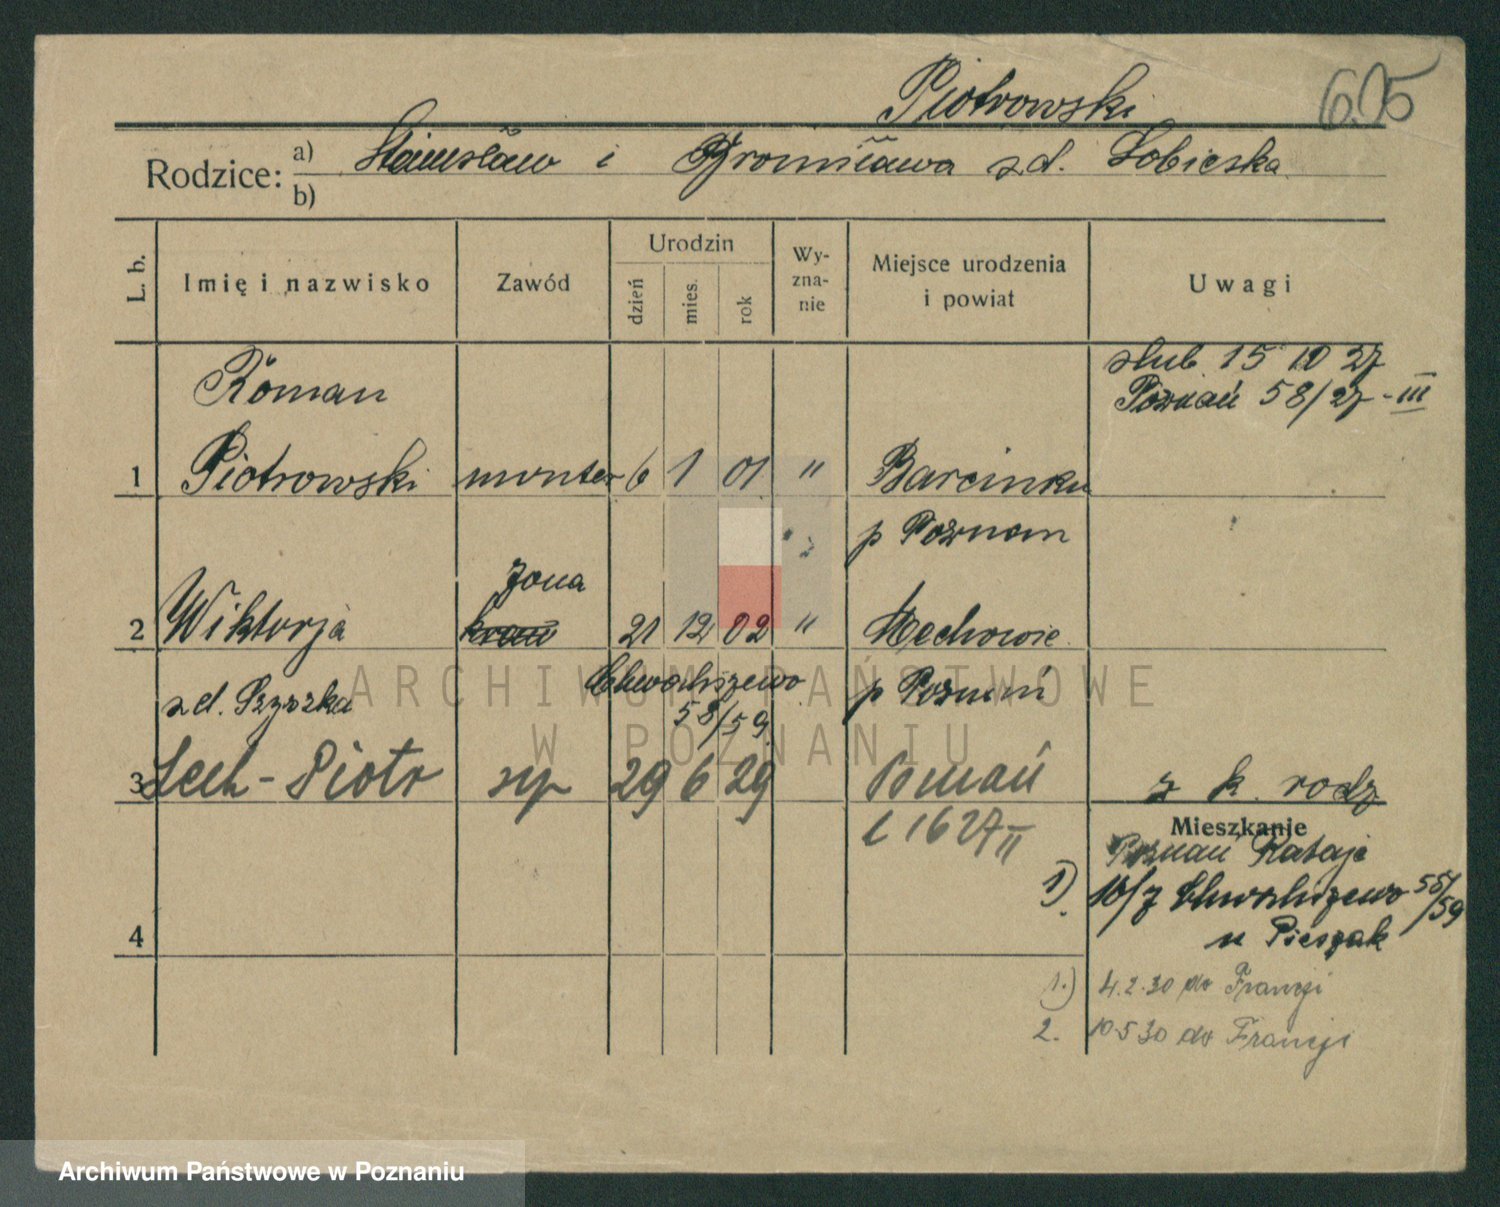 Piotrowski
605
Rodzice: a) Stanisław i Bronisława zd. Sobieska
b)
L. b.
Imię i nazwisko
Zawód
Urodzin
dzień
mies.
rok
Wy-
zna-
nie
Miejsce urodzenia
i powiat
Uwagi
ślub 15 10 27
Poznań 58/27 - III
Roman
1 Piotrowski monter 6 1 01 " Barcinku
p Poznań
żona
2 Wiktorja 21 12 02 " Mechowie
zd. Szyszka
Chwaliszewo
58/59
p Poznań
3 Lech-Piotr syn 29 6 29 Poznań
L 1627 II
z k. rodz
Mieszkanie
Poznań Rataje
1) 10/7 Chwaliszewo 58/59
u Pieszak
4
1.) 4.2.30 do Francji
2. 10 5 30 do Francji
ARCHIWUM PAŃSTWOWE
W POZNANIU
Archiwum Państwowe w Poznaniu